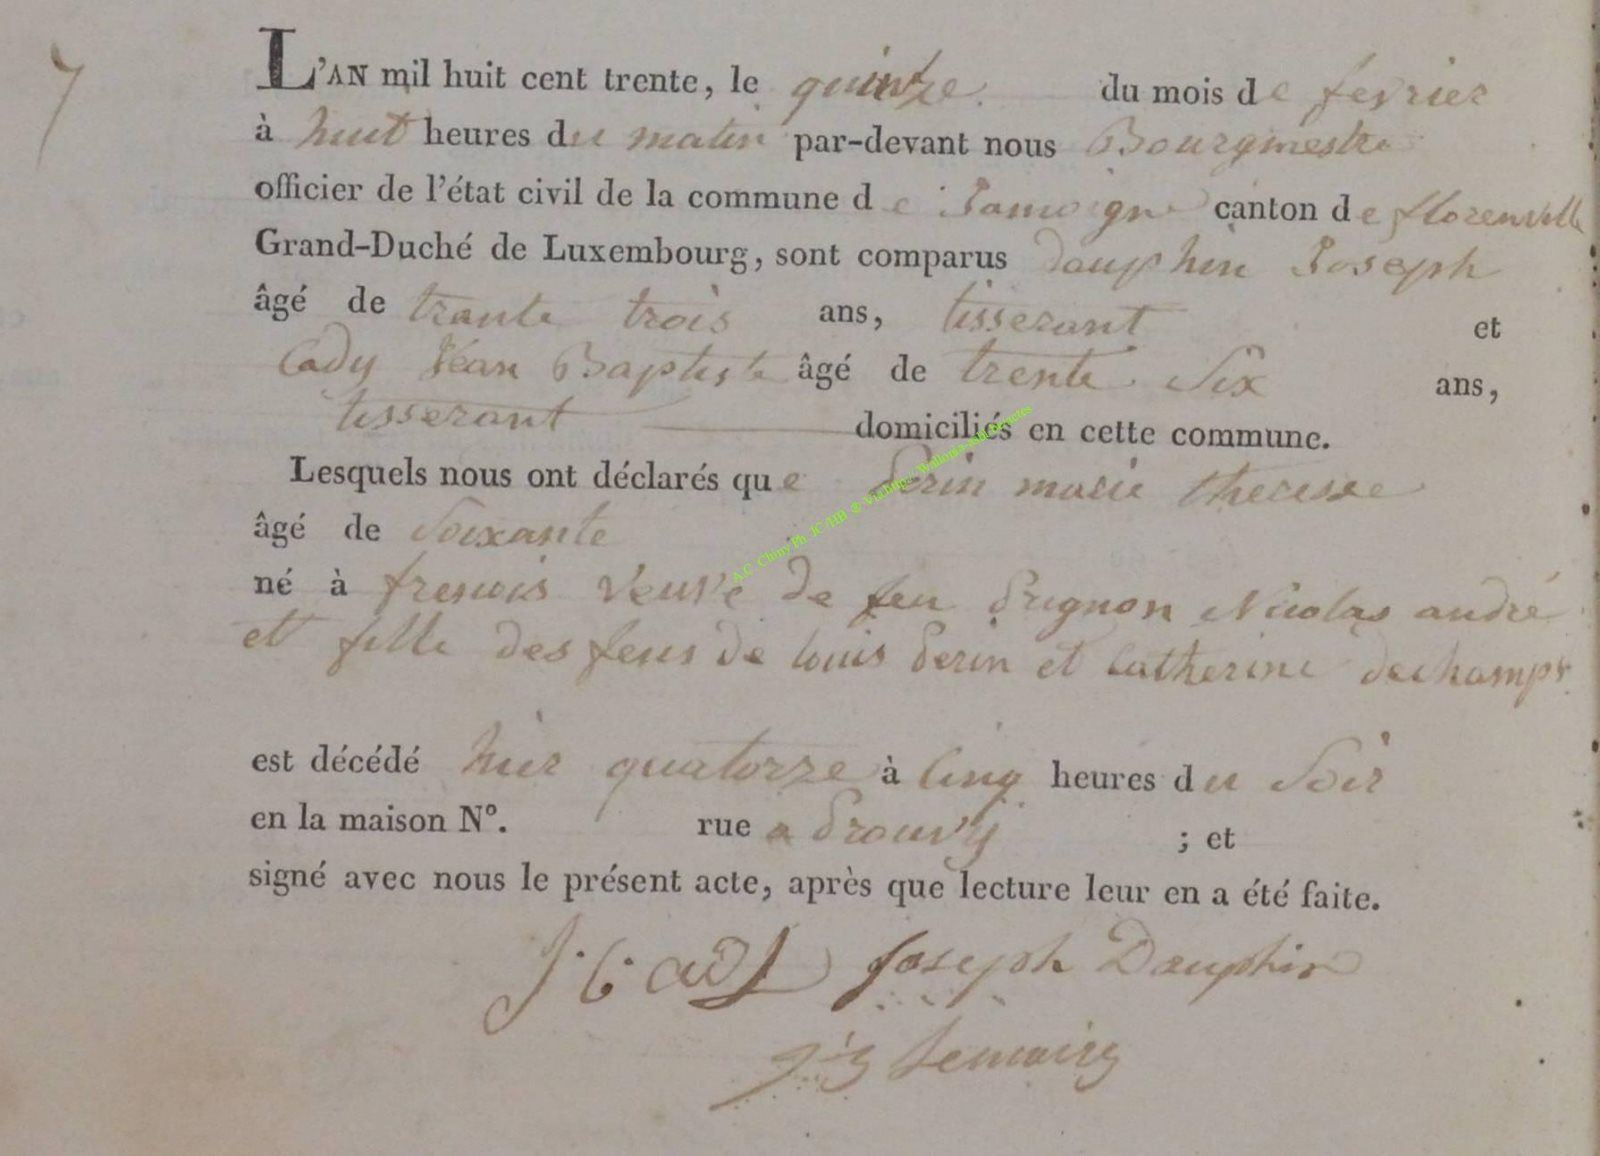 7
L'AN mil huit cent trente, le quinze du mois de fevrier
à huit heures du matin par-devant nous Bourgmestre
officier de l'état civil de la commune de Jamoigne canton de florenville
Grand-Duché de Luxembourg, sont comparus dauphin Joseph
âgé de trante trois ans, tisserant et
Cady Jéan Baptiste âgé de trente Six ans,
tisserant domiciliés en cette commune.
Lesquels nous ont déclarés que Perin marie therese
âgé de Soixante
né à frenois veuve de feu Prignon Nicolas andré
et fille des feus de louis Perin et Catherine dechamps
est décédé hier quatorze à Cinq heures du Soir
en la maison N°. rue a Prouvy ; et
signé avec nous le présent acte, après que lecture leur en a été faite.
Joseph Dauphin
Lemaire
A.C. Chiny Ph. JC/HB @ Via http:// Wallonia-asbl